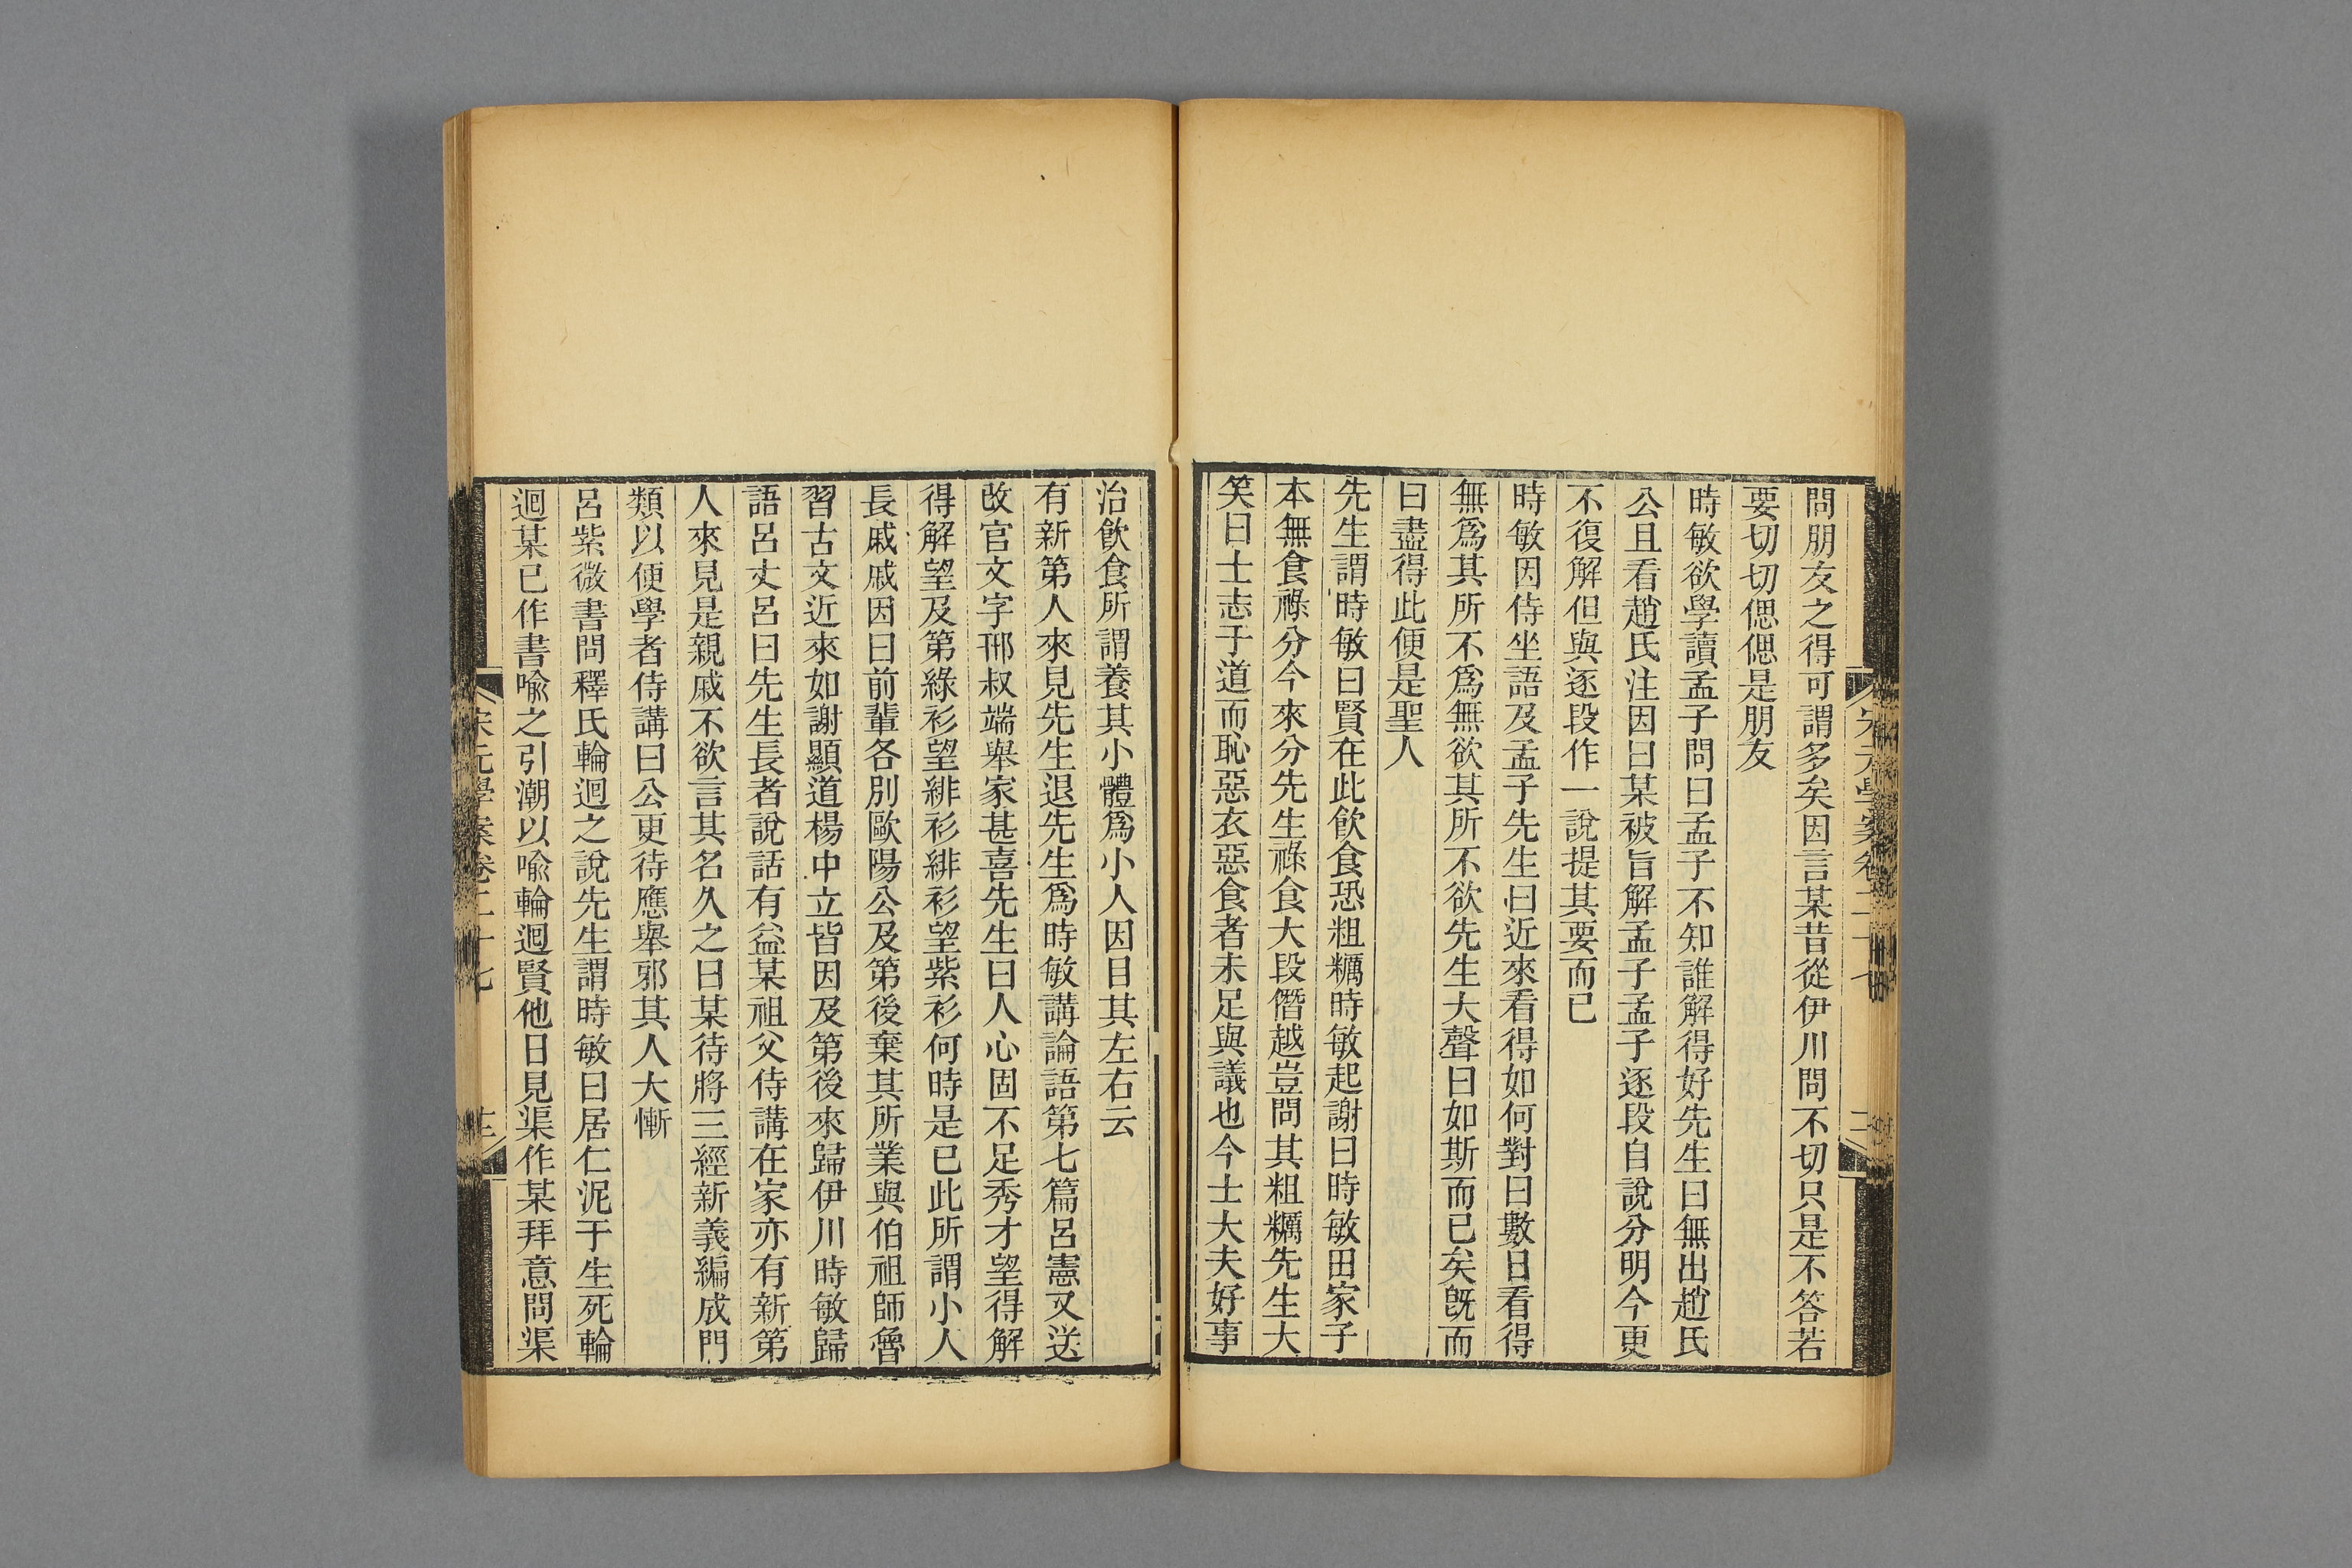 問朋友之得可謂多矣因言某昔從伊川問不切只是不答若
要切切偲偲是朋友
時敏欲學讀孟子問曰孟子不知誰解得好先生曰無出趙氏
公且看趙氏注因曰某被旨解孟子孟子逐段自說分明今更
不復解但與逐段作一說提其要而已
時敏因侍坐語及孟子先生曰近來看得如何對曰數日看得
無爲其所不爲無欲其所不欲先生大聲曰如斯而已矣旣而
曰盡得此便是聖人
先生謂時敏曰賢在此飮食恐粗糲時敏起謝曰時敏田家子
本無食祿分今來分先生祿食大段僭越豈問其粗糲先生大
笑曰士志于道而恥惡衣惡食者未足與議也今士大夫好事
治飮食所謂養其小體爲小人因目其左右云
有新第人來見先生退先生爲時敏講論語第七篇呂憲又送
改官文字邢叔端舉家甚喜先生曰人心固不足秀才望得解
得解望及第綠衫望緋衫緋衫望紫衫何時是已此所謂小人
長戚戚因曰前輩各別歐陽公及第後棄其所業與伯祖師魯
習古文近來如謝顯道楊中立皆因及第後來歸伊川時敏歸
語呂丈呂曰先生長者說話有益某祖父侍講在家亦有新第
人來見是親戚不欲言其名久之曰某待將三經新義編成門
類以便學者侍講曰公更待應舉邪其人大慚
呂紫微書問釋氏輪迴之說先生謂時敏曰居仁泥于生死輪
迴某已作書喩之引潮以喩輪迴賢他日見渠作某拜意問渠
宋元學案卷二十七